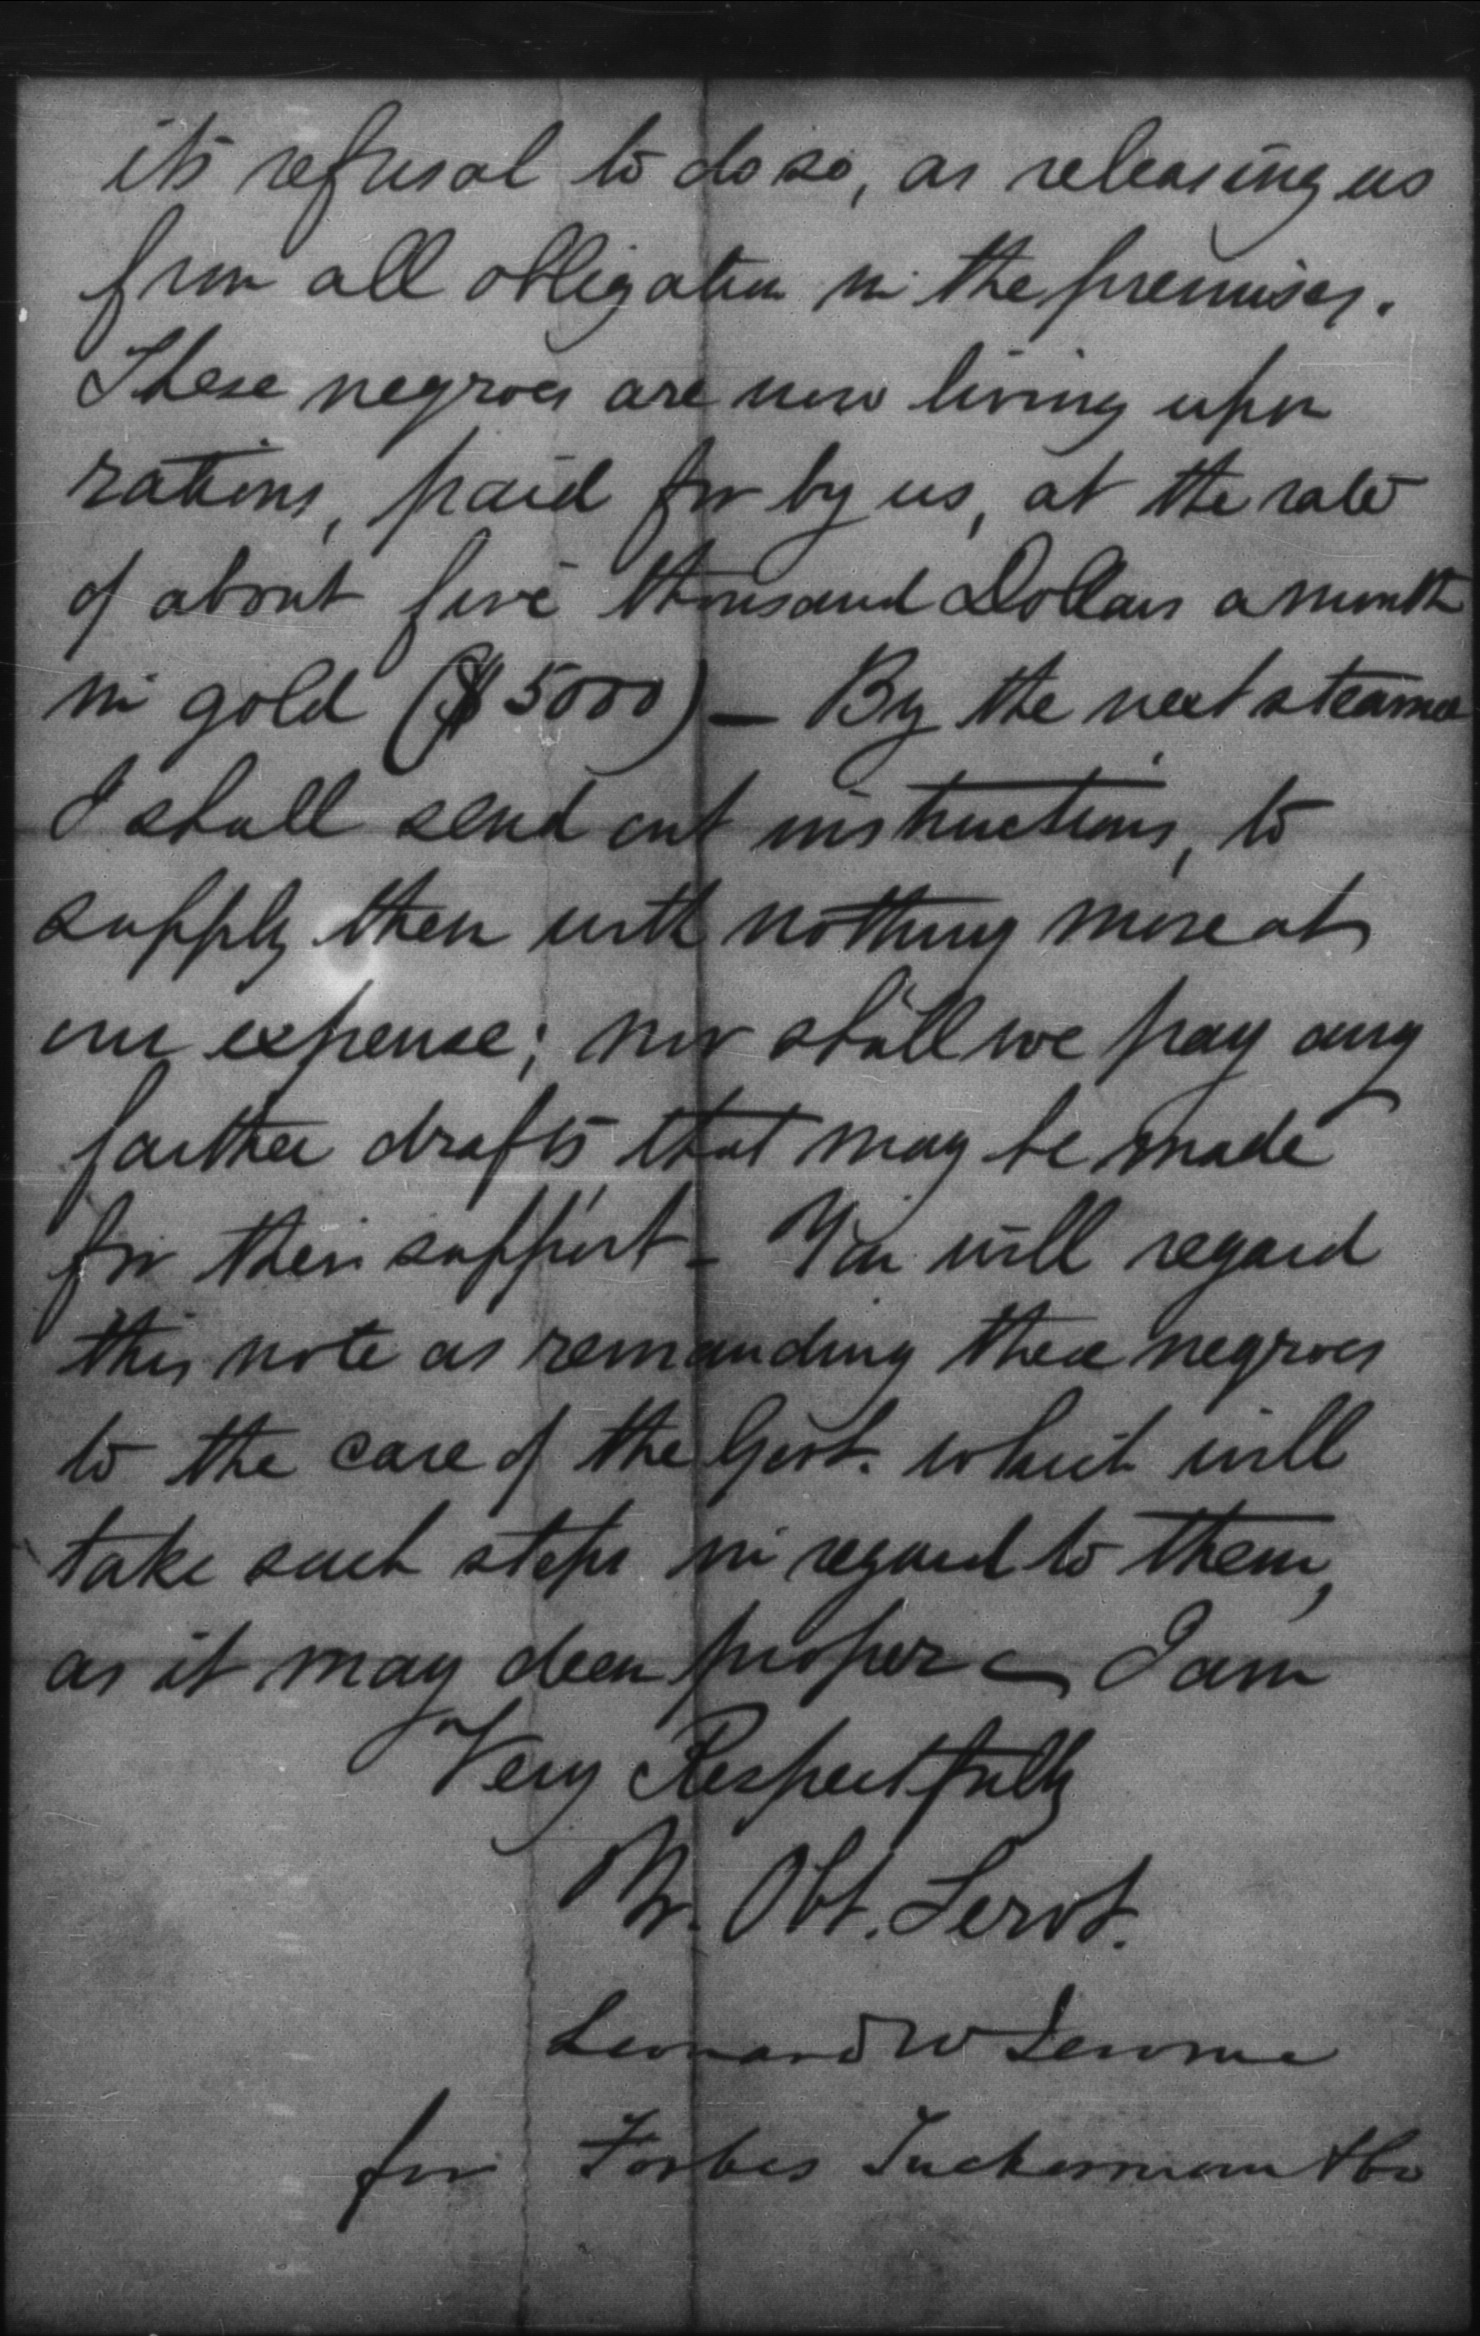 its refusal to do so, as releasing us
from all obligation in the premises.
These negroes are now living upon
rations, paid for by us, at the rate
of about five thousand Dollars a month
in gold ($5000) — By the next steamer
I shall send out instructions, to
supply them with nothing more at
our expense; nor shall we pay any
farther drafts that may be made
for their support - You will regard
this note as remanding these negroes
to the care of the Govt. which will
take such steps in regard to them,
as it may deem proper — I am
Very Respectfully
Yr. Obt. Servt.
Leonard W Jerome
for Forbes Tuckerman & Co